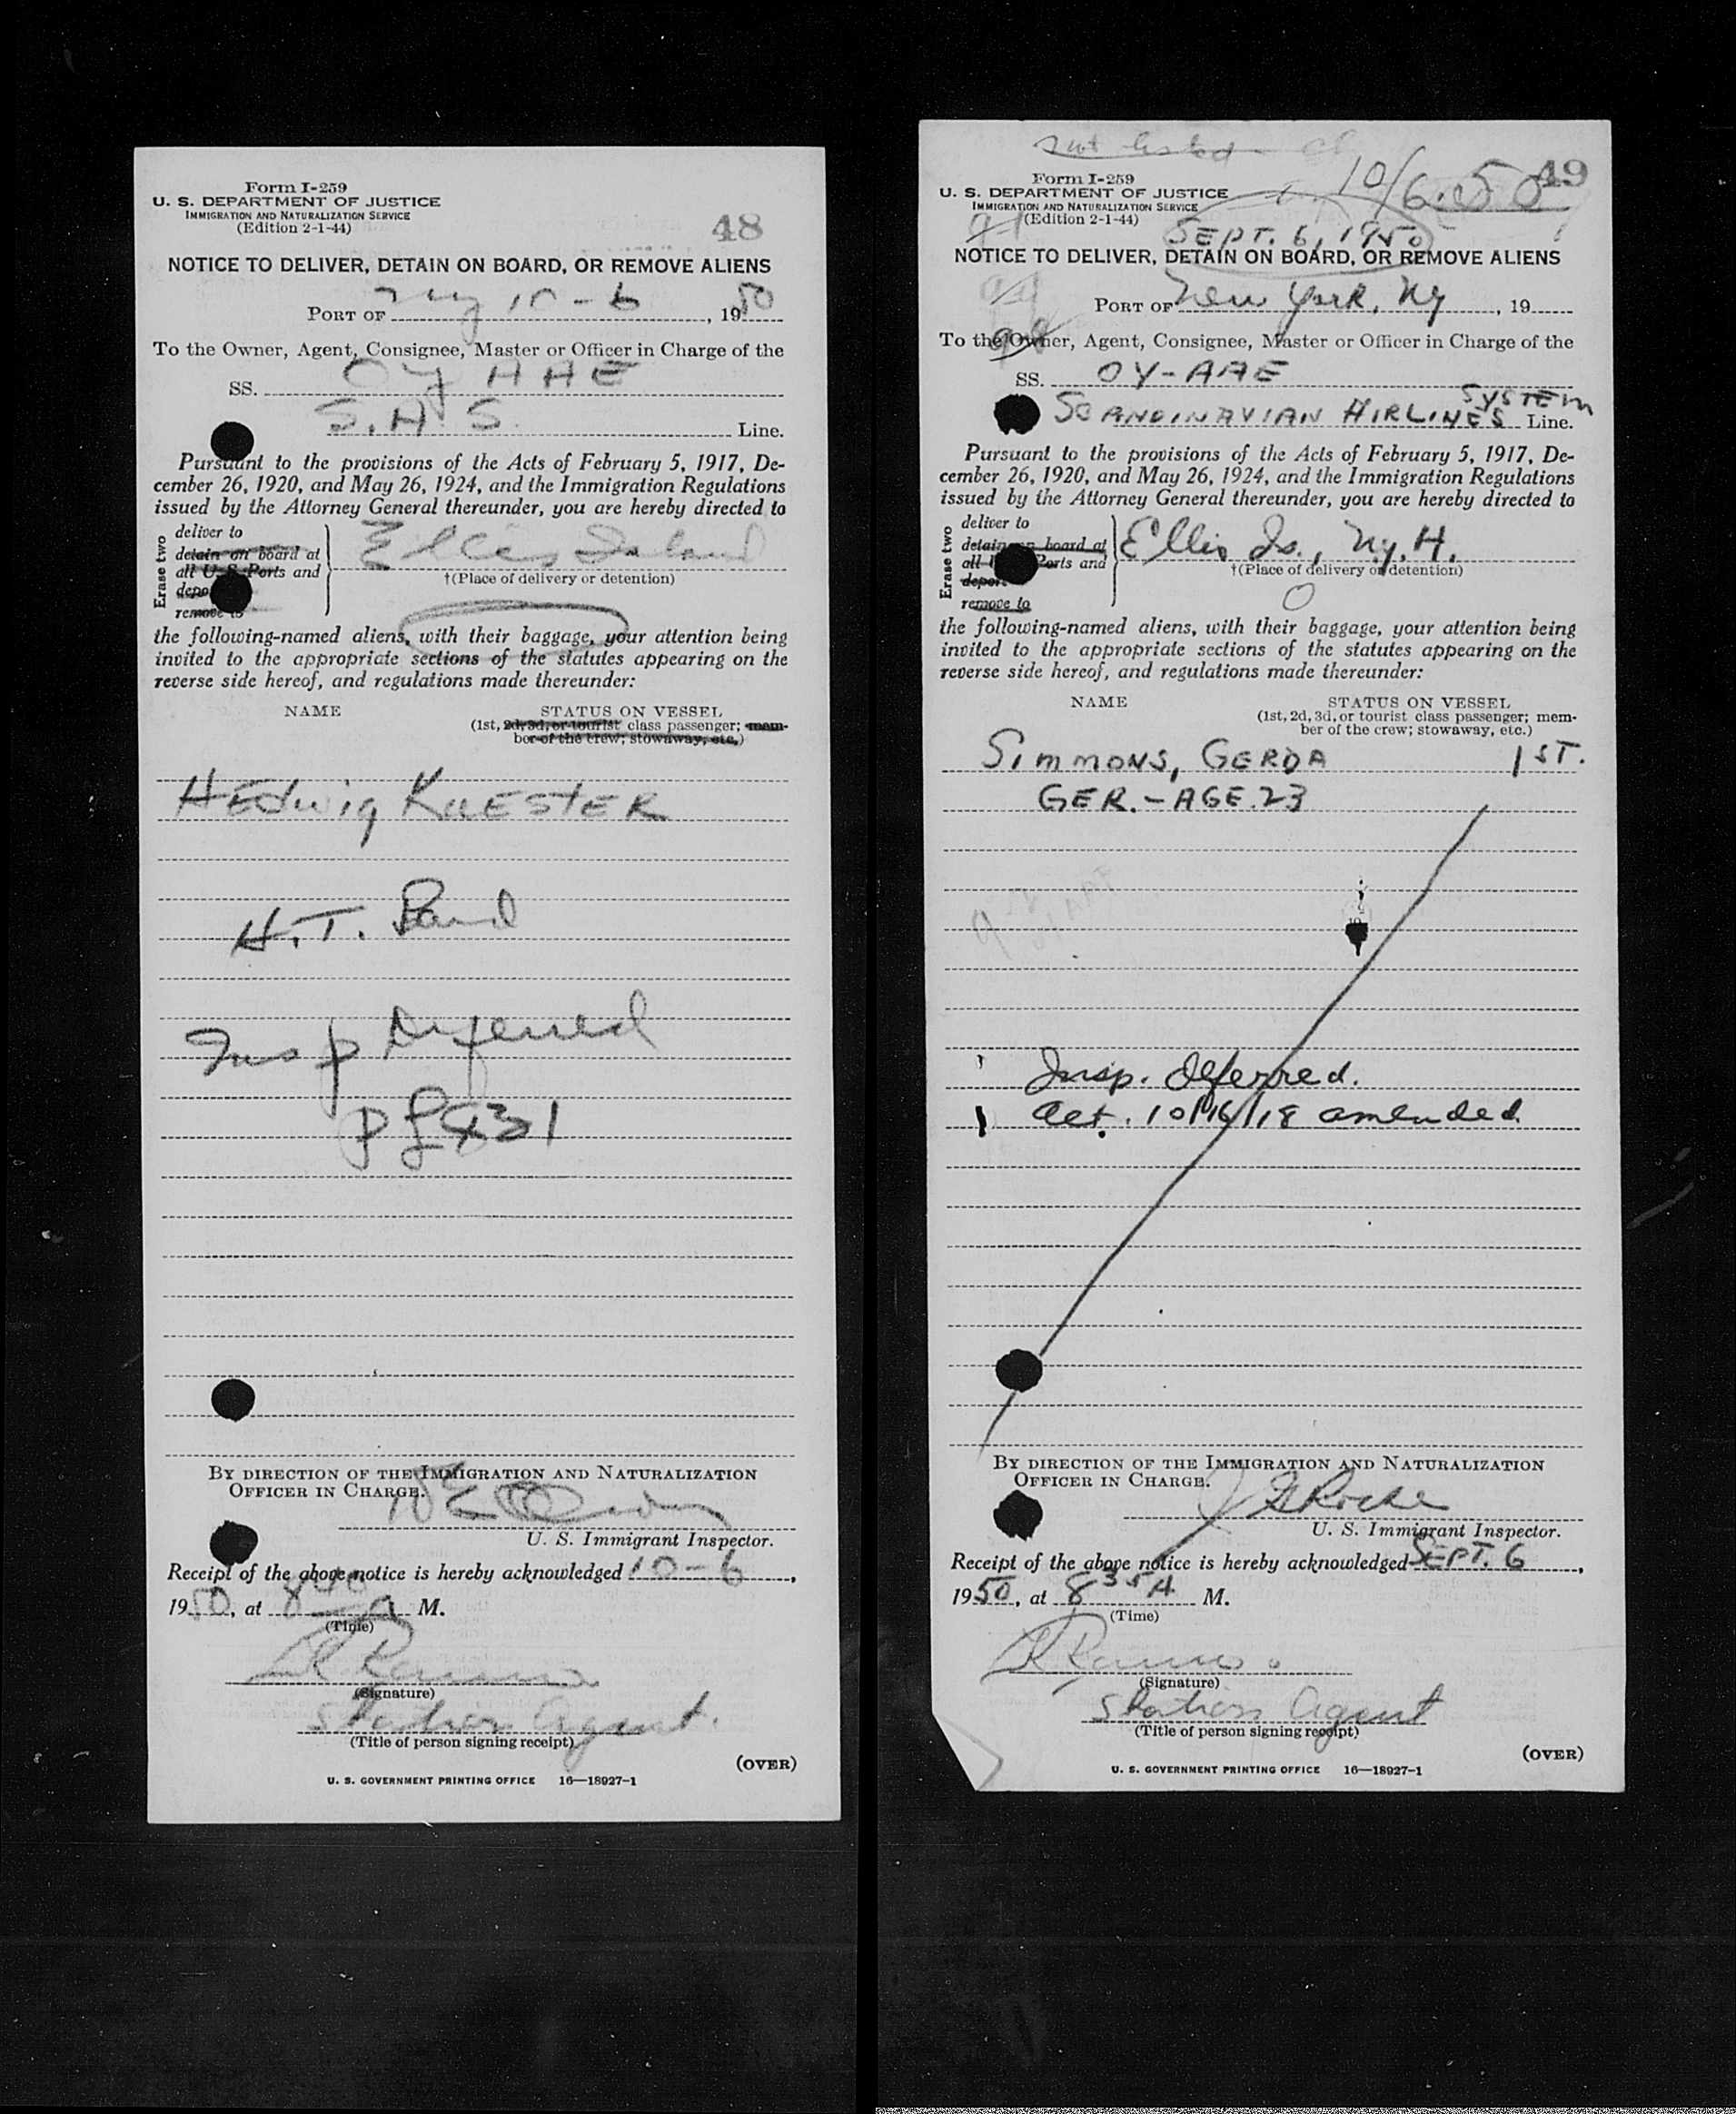 Form I-259
U. S. DEPARTMENT OF JUSTICE
IMMIGRATION AND NATURALIZATION SERVICE
(Edition 2-1-44)
48
NOTICE TO DELIVER, DETAIN ON BOARD, OR REMOVE ALIENS
PORT OF NY 10-6, 1950
To the Owner, Agent, Consignee, Master or Officer in Charge of the
SS. OY AAE
S.A.S. Line.
Pursuant to the provisions of the Acts of February 5, 1917, De-
cember 26, 1920, and May 26, 1924, and the Immigration Regulations
issued by the Attorney General thereunder, you are hereby directed to
Erase two
deliver to
detain on board at
all U.S. Ports and
depo
remove to
Ellis Island
†(Place of delivery or detention)
the following-named aliens, with their baggage, your attention being
invited to the appropriate sections of the statutes appearing on the
reverse side hereof, and regulations made thereunder:
NAME STATUS ON VESSEL
(1st, 2d, 3d, or tourist class passenger; mem-
ber of the crew; stowaway, etc.)
HEdwig KUESTER
H.T. Band
Insp Deferred
BY DIRECTION OF THE IMMIGRATION AND NATURALIZATION
OFFICER IN CHARGE.
U. S. Immigrant Inspector.
Receipt of the above notice is hereby acknowledged 10-6,
1950, at 840 A M.
(Time)
(Signature)
Station Agent.
(Title of person signing receipt)
(OVER)
U. S. GOVERNMENT PRINTING OFFICE 16—18927-1
not listed
Form I-259
U. S. DEPARTMENT OF JUSTICE
IMMIGRATION AND NATURALIZATION SERVICE
(Edition 2-1-44)
10/6.50
49
SEPT. 6, 1950
NOTICE TO DELIVER, DETAIN ON BOARD, OR REMOVE ALIENS
PORT OF New York, NY, 19
To the Owner, Agent, Consignee, Master or Officer in Charge of the
SS. OY-AAE
SCANDINAVIAN AIRLINES SYSTEM Line.
Pursuant to the provisions of the Acts of February 5, 1917, De-
cember 26, 1920, and May 26, 1924, and the Immigration Regulations
issued by the Attorney General thereunder, you are hereby directed to
Erase two
deliver to
detain on board at
all Ports and
depor
remove to
Ellis Is., Ny. H.
†(Place of delivery or detention)
the following-named aliens, with their baggage, your attention being
invited to the appropriate sections of the statutes appearing on the
reverse side hereof, and regulations made thereunder:
NAME STATUS ON VESSEL
(1st, 2d, 3d, or tourist class passenger; mem-
ber of the crew; stowaway, etc.)
SIMMONS, GERDA 1ST.
GER. - AGE. 23
Insp. deferred.
Act. 10/16/18 amended.
BY DIRECTION OF THE IMMIGRATION AND NATURALIZATION
OFFICER IN CHARGE.
U. S. Immigrant Inspector.
Receipt of the above notice is hereby acknowledged SEPT. 6,
1950, at 835 A M.
(Time)
(Signature)
Station Agent
(Title of person signing receipt)
(OVER)
U. S. GOVERNMENT PRINTING OFFICE 16—18927-1